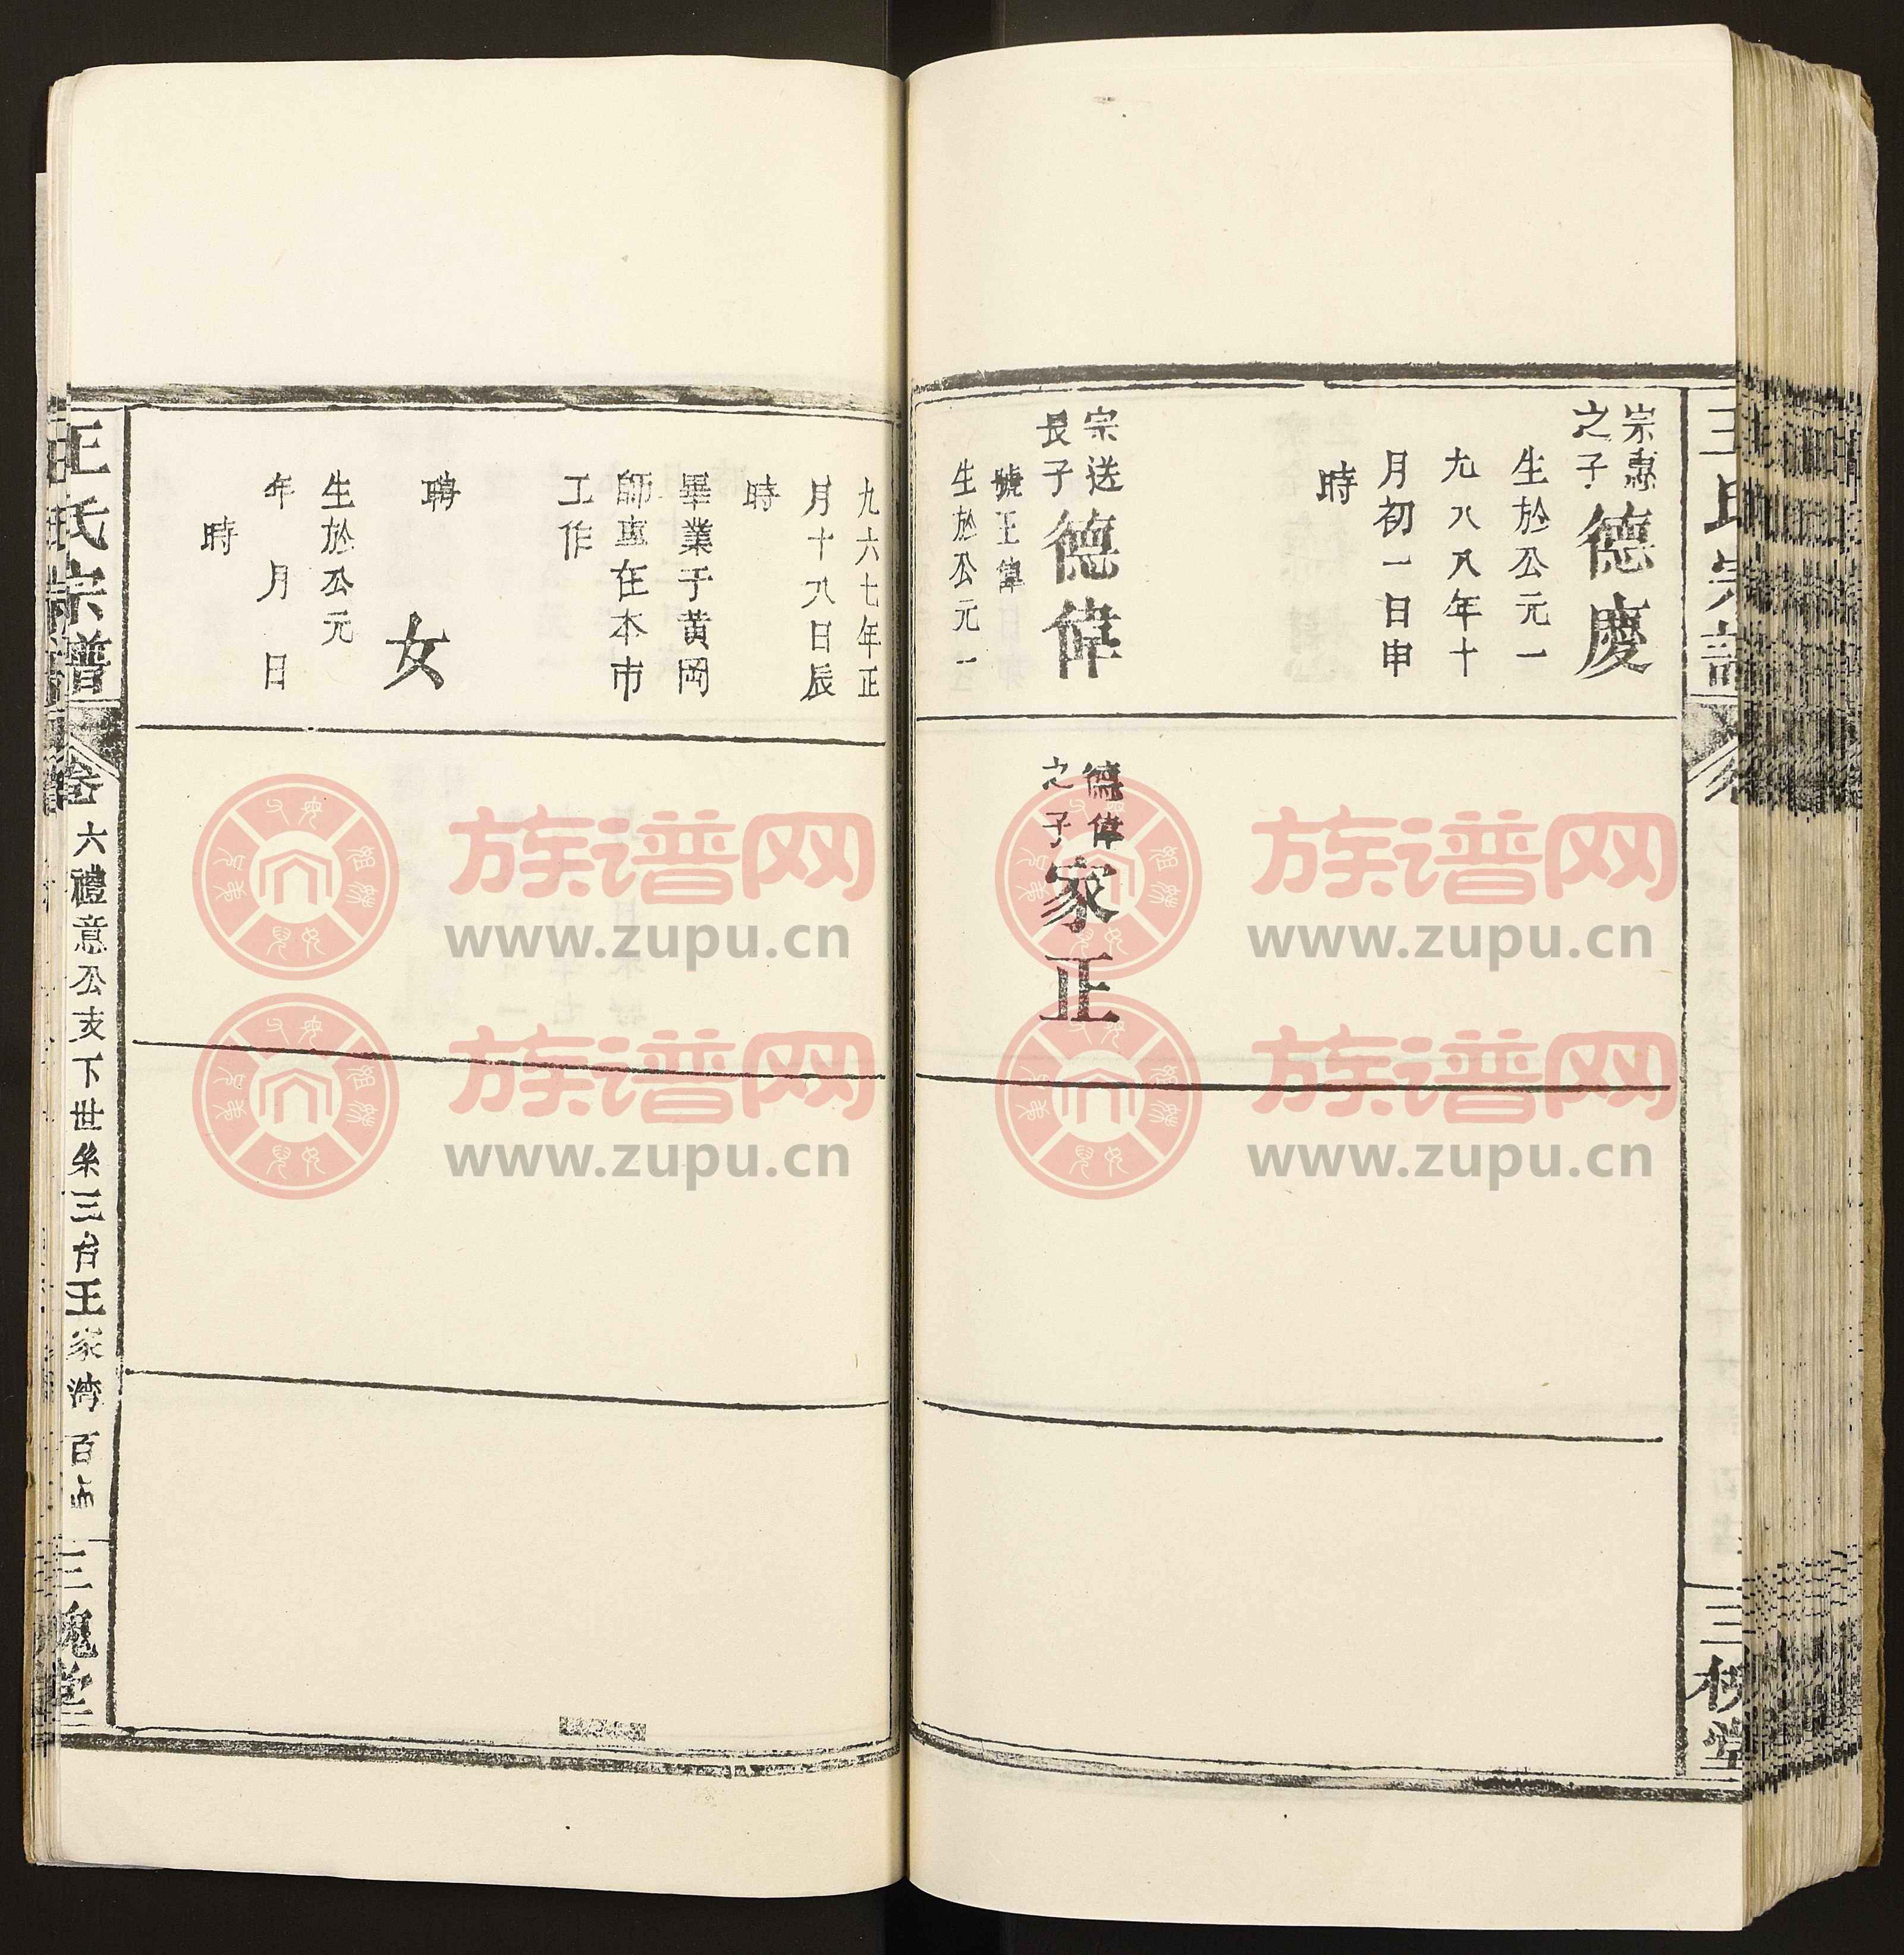 宗惠
之子
德慶
生於公元一
九八八年十
月初一日申
時
宗送
長子
德偉
號王偉
生於公元一
德偉
之子
家正
九六七年正
月十八日辰
時
畢業于黄岡
師專在本市
工作
聘
女
生於公元
年 月 日
時
王氏宗譜
卷六禮意公支下世系三台王家湾
三槐堂
族谱网
www.zupu.cn
族谱网
www.zupu.cn
族谱网
www.zupu.cn
族谱网
www.zupu.cn